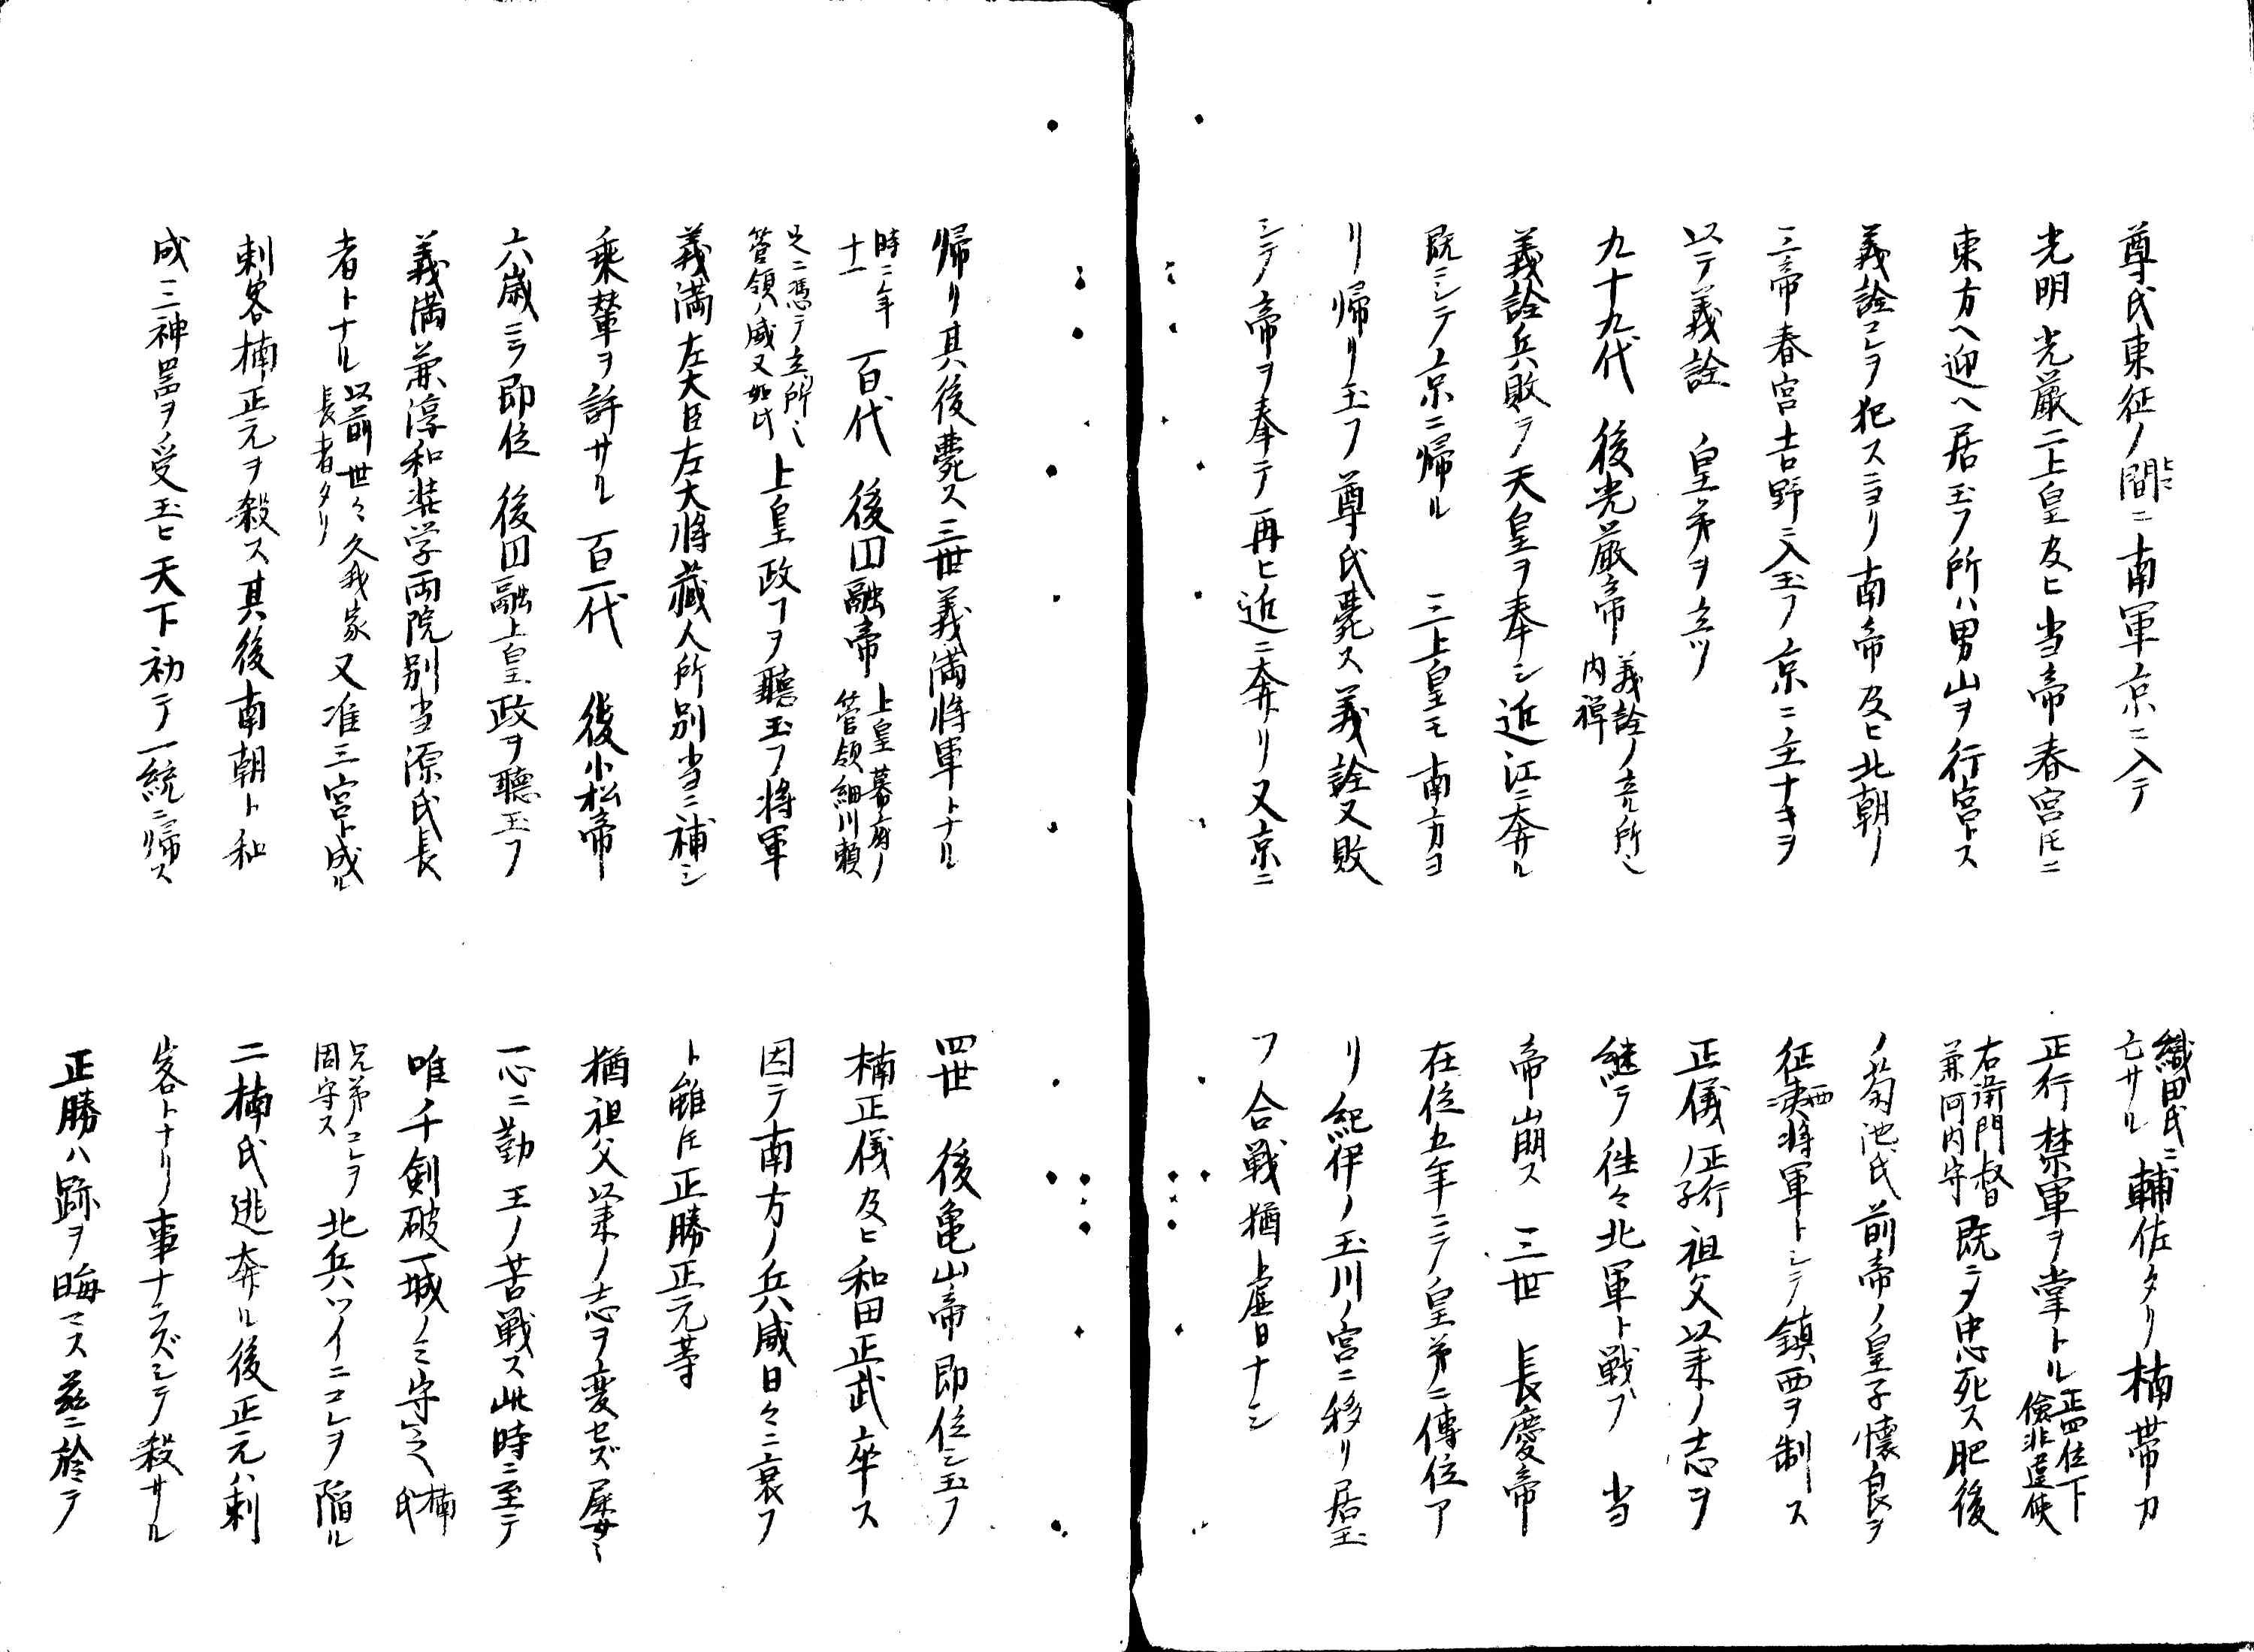 尊氏東征ノ間ヒマニ南軍京ニ入テ
光明光厳二上皇及ヒ当帝春宮𪜈ニ
東方ヘ迎ヘ居玉フ所ハ男山ヲ行宮トス
義詮コレヲ犯スニヨリ南帝及ヒ北朝ノ
三帝春宮吉野ニ入玉フ京ニノ主ナキヲ
以テ義詮 皇弟ヲ立ツ
九十九代 後光厳帝 義詮ノ立ル所也
内禅
義詮兵敗テ天皇ヲ奉シ近江ニ奔ル
既ニシテ京ニ帰ル 三上皇モ南方ヨ
リ帰リ玉フ尊氏薨ス義詮又敗
シテ帝ヲ奉テ再ヒ近ニ奔リ又京ニ
帰リ其後薨ス三世義満将軍トナル
時ニ年
十一 百代 後円融帝 上皇幕府ノ
管領細川頼
之ニ憑テ立ル所也
管領ノ威又如此 上皇政フヲ聴玉フ将軍
義満左大臣左大将蔵人所別当ニ補シ
乗輦ヲ許サル 百一代 後小松帝
六歳ニテ即位 後円融上皇政ヲ聴玉フ
義満兼淳和奨学両院別当源氏長
者トナル 以前世々久我家
長者タリ 又准三宮ト成ル
刺客楠正元ヲ殺ス其後南朝ト和
成三神器ヲ受玉ヒ天下初テ一統ニ帰ス
織田氏ニ
亡サル 輔佐タリ楠帯刀
正行禁軍ヲ掌トル 正四位下
儉非違使
右衛門督
兼河内守 既ニメ忠死ス肥後
ノ菊池氏前帝ノ皇子懐良ヲ
征西将軍トシテ鎮西ヲ制ス
正儀 正行
ノ子 祖父以来ノ志ヲ
継テ往々北軍ト戦フ 当
帝崩ス 三世 長慶帝
在位五年ニテ皇弟ニ傳位ア
リ紀伊ノ玉川ノ宮ニ移リ居玉
フ合戦猶虚日ナシ
四世 後亀山帝即位シ玉フ
楠正儀及ヒ和田正武卒ス
因テ南方ノ兵威日々ニ衰フ
ト雖𪜈正勝正元等
猶祖父以来ノ志ヲ変セズ屡
一心ニ勤王ノ苦戦ス此時ニ至テ
唯千剣破一城ノミ守之 楠
氏
兄弟コレヲ
固守ス 北兵ツイニコレヲ陥ル
二楠氏逃奔ル後正元ハ刺
客トナリ事ナラズシテ殺サル
正勝ハ跡ヲ晦マス茲ニ於テ